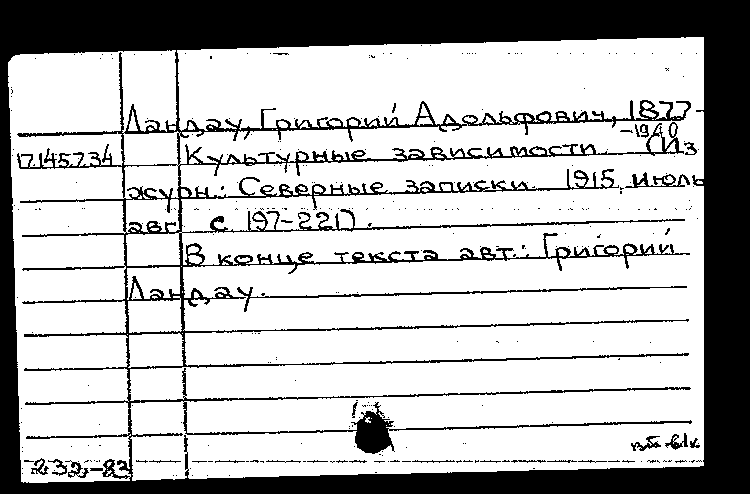 Ландау, Григорий Адольфович, 1877-
-1940
17.145.7.34 Культурные зависимости. (Из
журн.: Северные записки 1915, июль
авг с 197-221).
В конце текста авт.: Григорий
Ландау.
232,-83